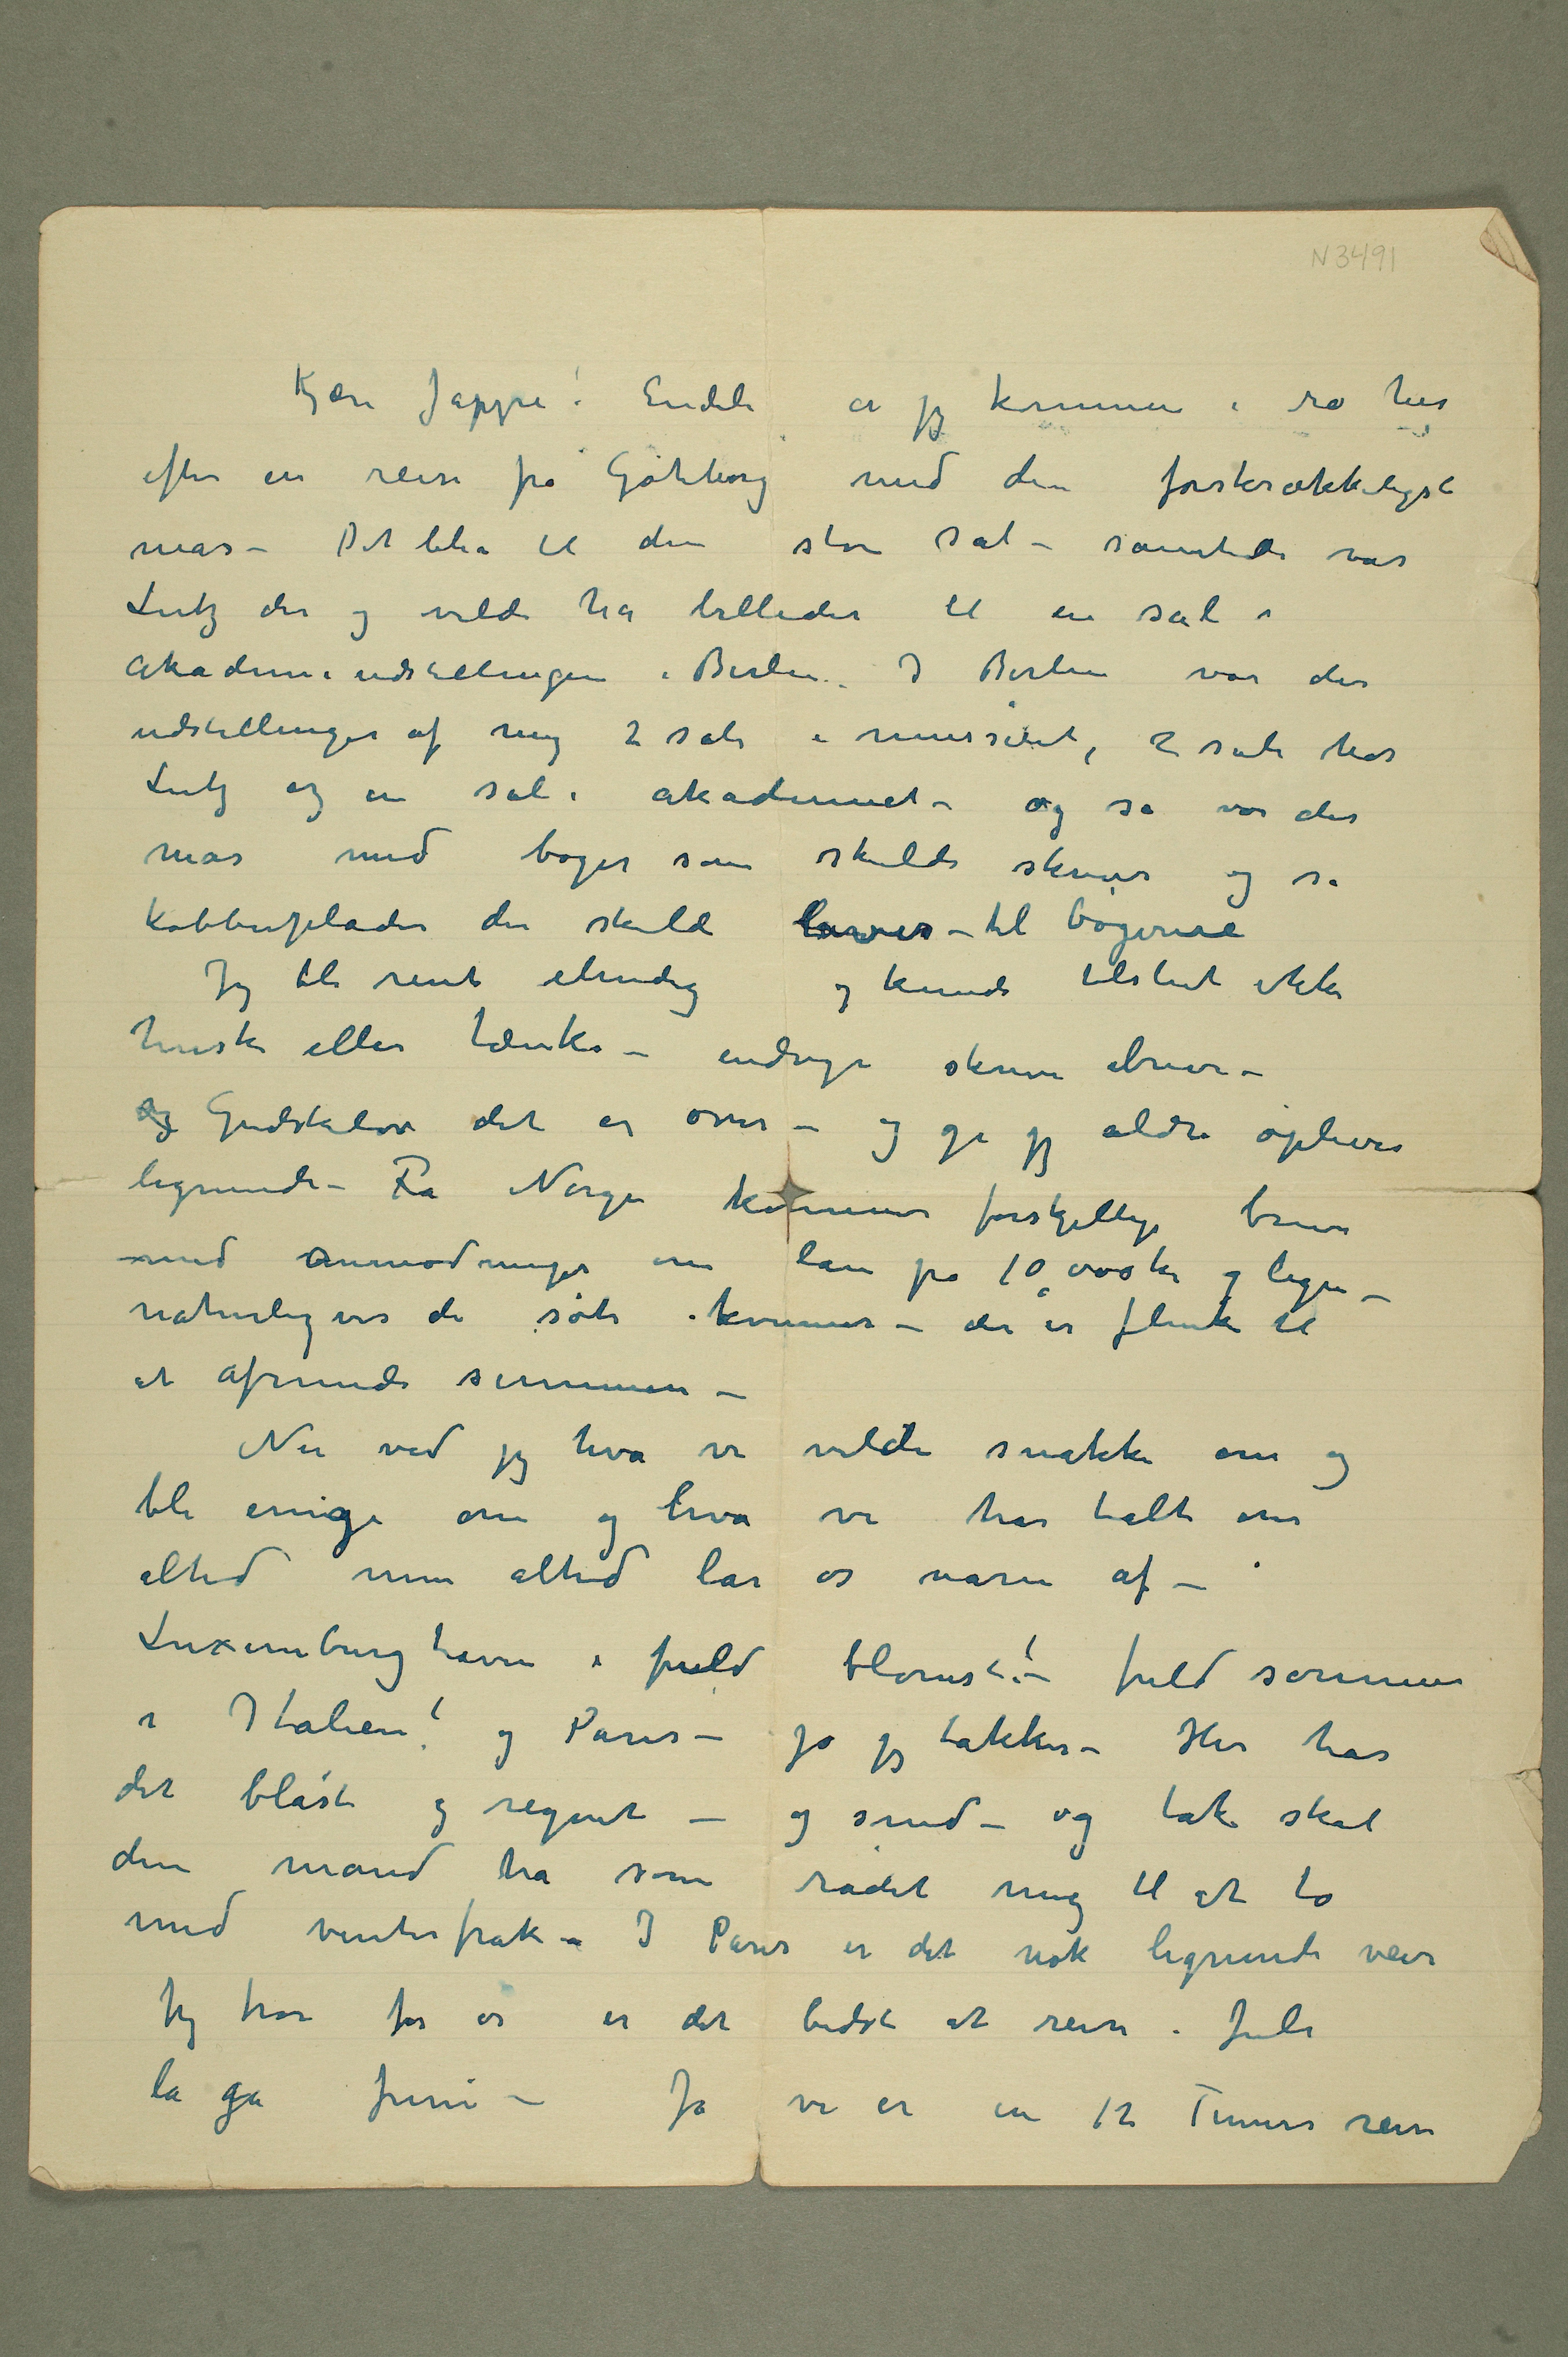 N3491
Kjære Jappe! Endeli er jeg kommen i ro her
efter en reise fra Göteborg med den forskrækkeligste
mas – Det ble til den store sal – samtidi var
Lutz der og vilde ha billeder til en sal i
Akademiudstillingen i Berlin. I Berlin var der
udstillinger af mig 2 sale i museet, 2 sale hos
Lutz og en sal i akademiet – og så var der
mas med bøger som skulde skrives og så
kobberplader der skulde laves – til bøgerne
Jeg ble rent elendig og kunde tilslut ikke
huske eller tænke – endsige skrive breve –
Gudskelov det er over – og gi jeg aldri oplever
lignende – Fra Norge kommer forskjellige breve
med anmodninger om lån på 10,000 kr og lign –
naturligvis de søte kvinner – der er flinke til
at afrunde summen –
Nu ved jeg hva vi vilde snakke om og
bli enige om og hva vi har talt om
altid men altid lar os narre af –
Luxemburghaven i fuld blomst! – fuld sommer
i Italien! og Paris – jo jeg takker – Her har
det blåst og regnet – og sned – og tak skal
den mand ha som rådet mig til at ta
med vinterfrak – I Paris er det nok lignende veir
Jeg tror for os er det bedst at reise i Juli
la gå Juni – Ja vi er en 12 Timers reise